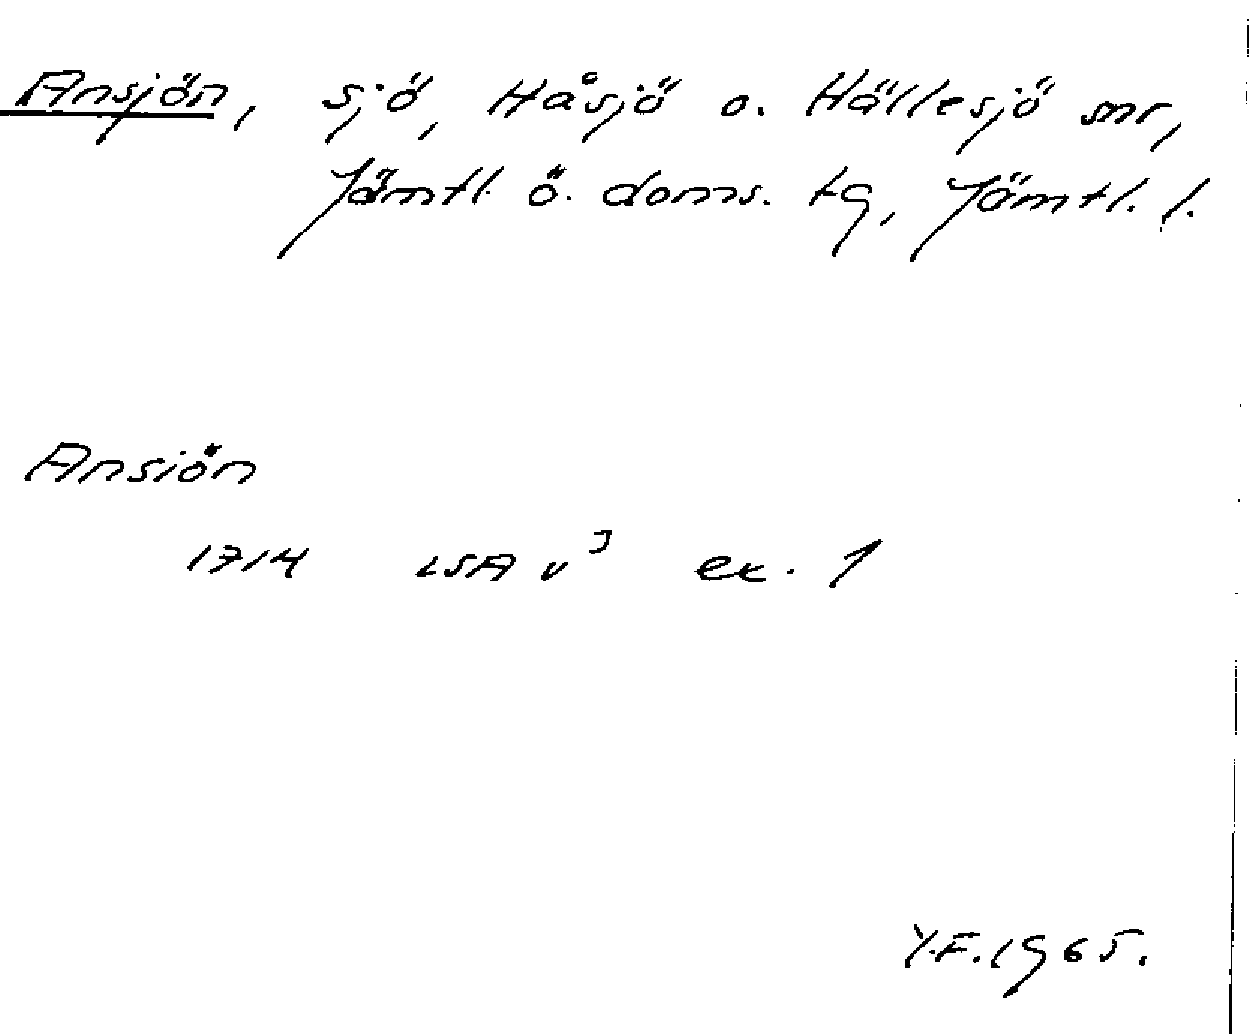 Ansjön, sjö, Håsjö o. Hällesjö snr,
Jämtl. ö. doms. tg, Jämtl. l.
Ansiön
1714 LSA v³ ex. 1
Y.F. 1965.